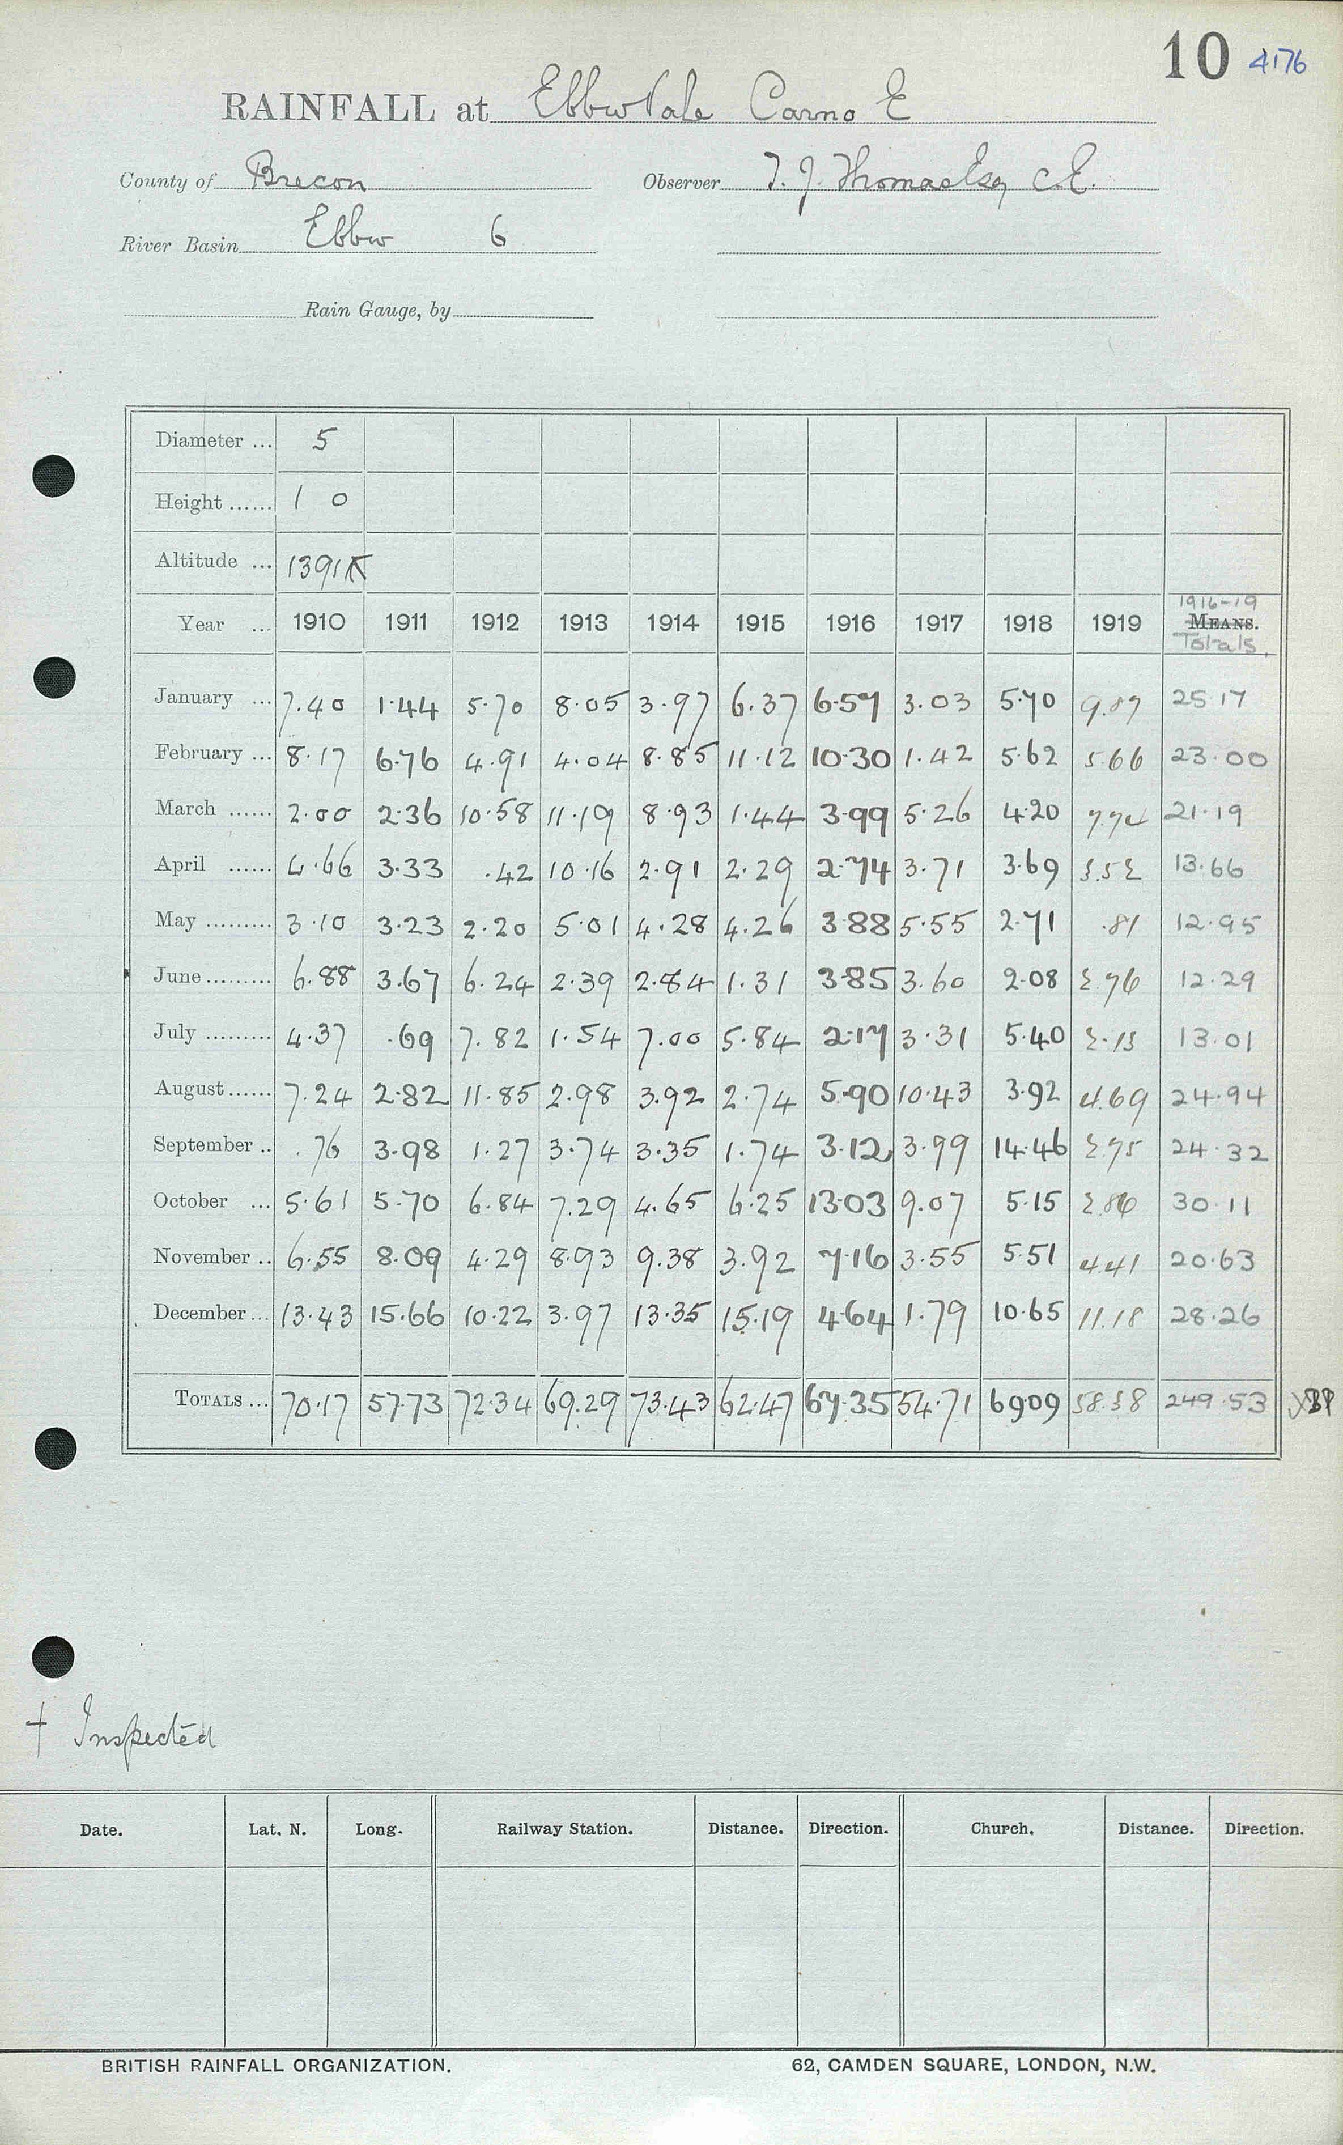 10 4176
RAINFALL at Ebbw Vale Carno E
County of Brecon Observer T. J. Thomas Esq C.E.
River Basin Ebbw 6
Rain Gauge, by
Diameter ... 5
Height ...... 1 0
Altitude ... 1391
1916-19
Year ... 1910 1911 1912 1913 1914 1915 1916 1917 1918 1919 MEANS.
Totals.
January ... 7.40 1.44 5.70 8.05 3.97 6.37 6.57 3.03 5.70 9.87 25.17
February ... 8.17 6.76 4.91 4.04 8.85 11.12 10.30 1.42 5.62 5.66 23.00
March ...... 2.00 2.36 10.58 11.19 8.93 1.44 3.99 5.26 4.20 7.74 21.19
April ...... 4.66 3.33 .42 10.16 2.91 2.29 2.74 3.71 3.69 3.52 13.66
May ......... 3.10 3.23 2.20 5.01 4.28 4.26 3.88 5.55 2.71 .81 12.95
June ......... 6.88 3.67 6.24 2.39 2.84 1.31 3.85 3.60 2.08 2.76 12.29
July ......... 4.37 .69 7.82 1.54 7.00 5.84 2.17 3.31 5.40 2.13 13.01
August ...... 7.24 2.82 11.85 2.98 3.92 2.74 5.90 10.43 3.92 4.69 24.94
September .. .76 3.98 1.27 3.74 3.35 1.74 3.12 3.99 14.46 2.75 24.32
October ... 5.61 5.70 6.84 7.29 4.65 6.25 13.03 9.07 5.15 2.86 30.11
November .. 6.55 8.09 4.29 8.93 9.38 3.92 7.16 3.55 5.51 4.41 20.63
December ... 13.43 15.66 10.22 3.97 13.35 15.19 4.64 1.79 10.65 11.18 28.26
TOTALS ... 70.17 57.73 72.34 69.29 73.43 62.47 67.35 54.71 69.09 58.38 249.53
† Inspected
Date. Lat. N. Long. Railway Station. Distance. Direction. Church. Distance. Direction.
BRITISH RAINFALL ORGANIZATION. 62, CAMDEN SQUARE, LONDON, N.W.